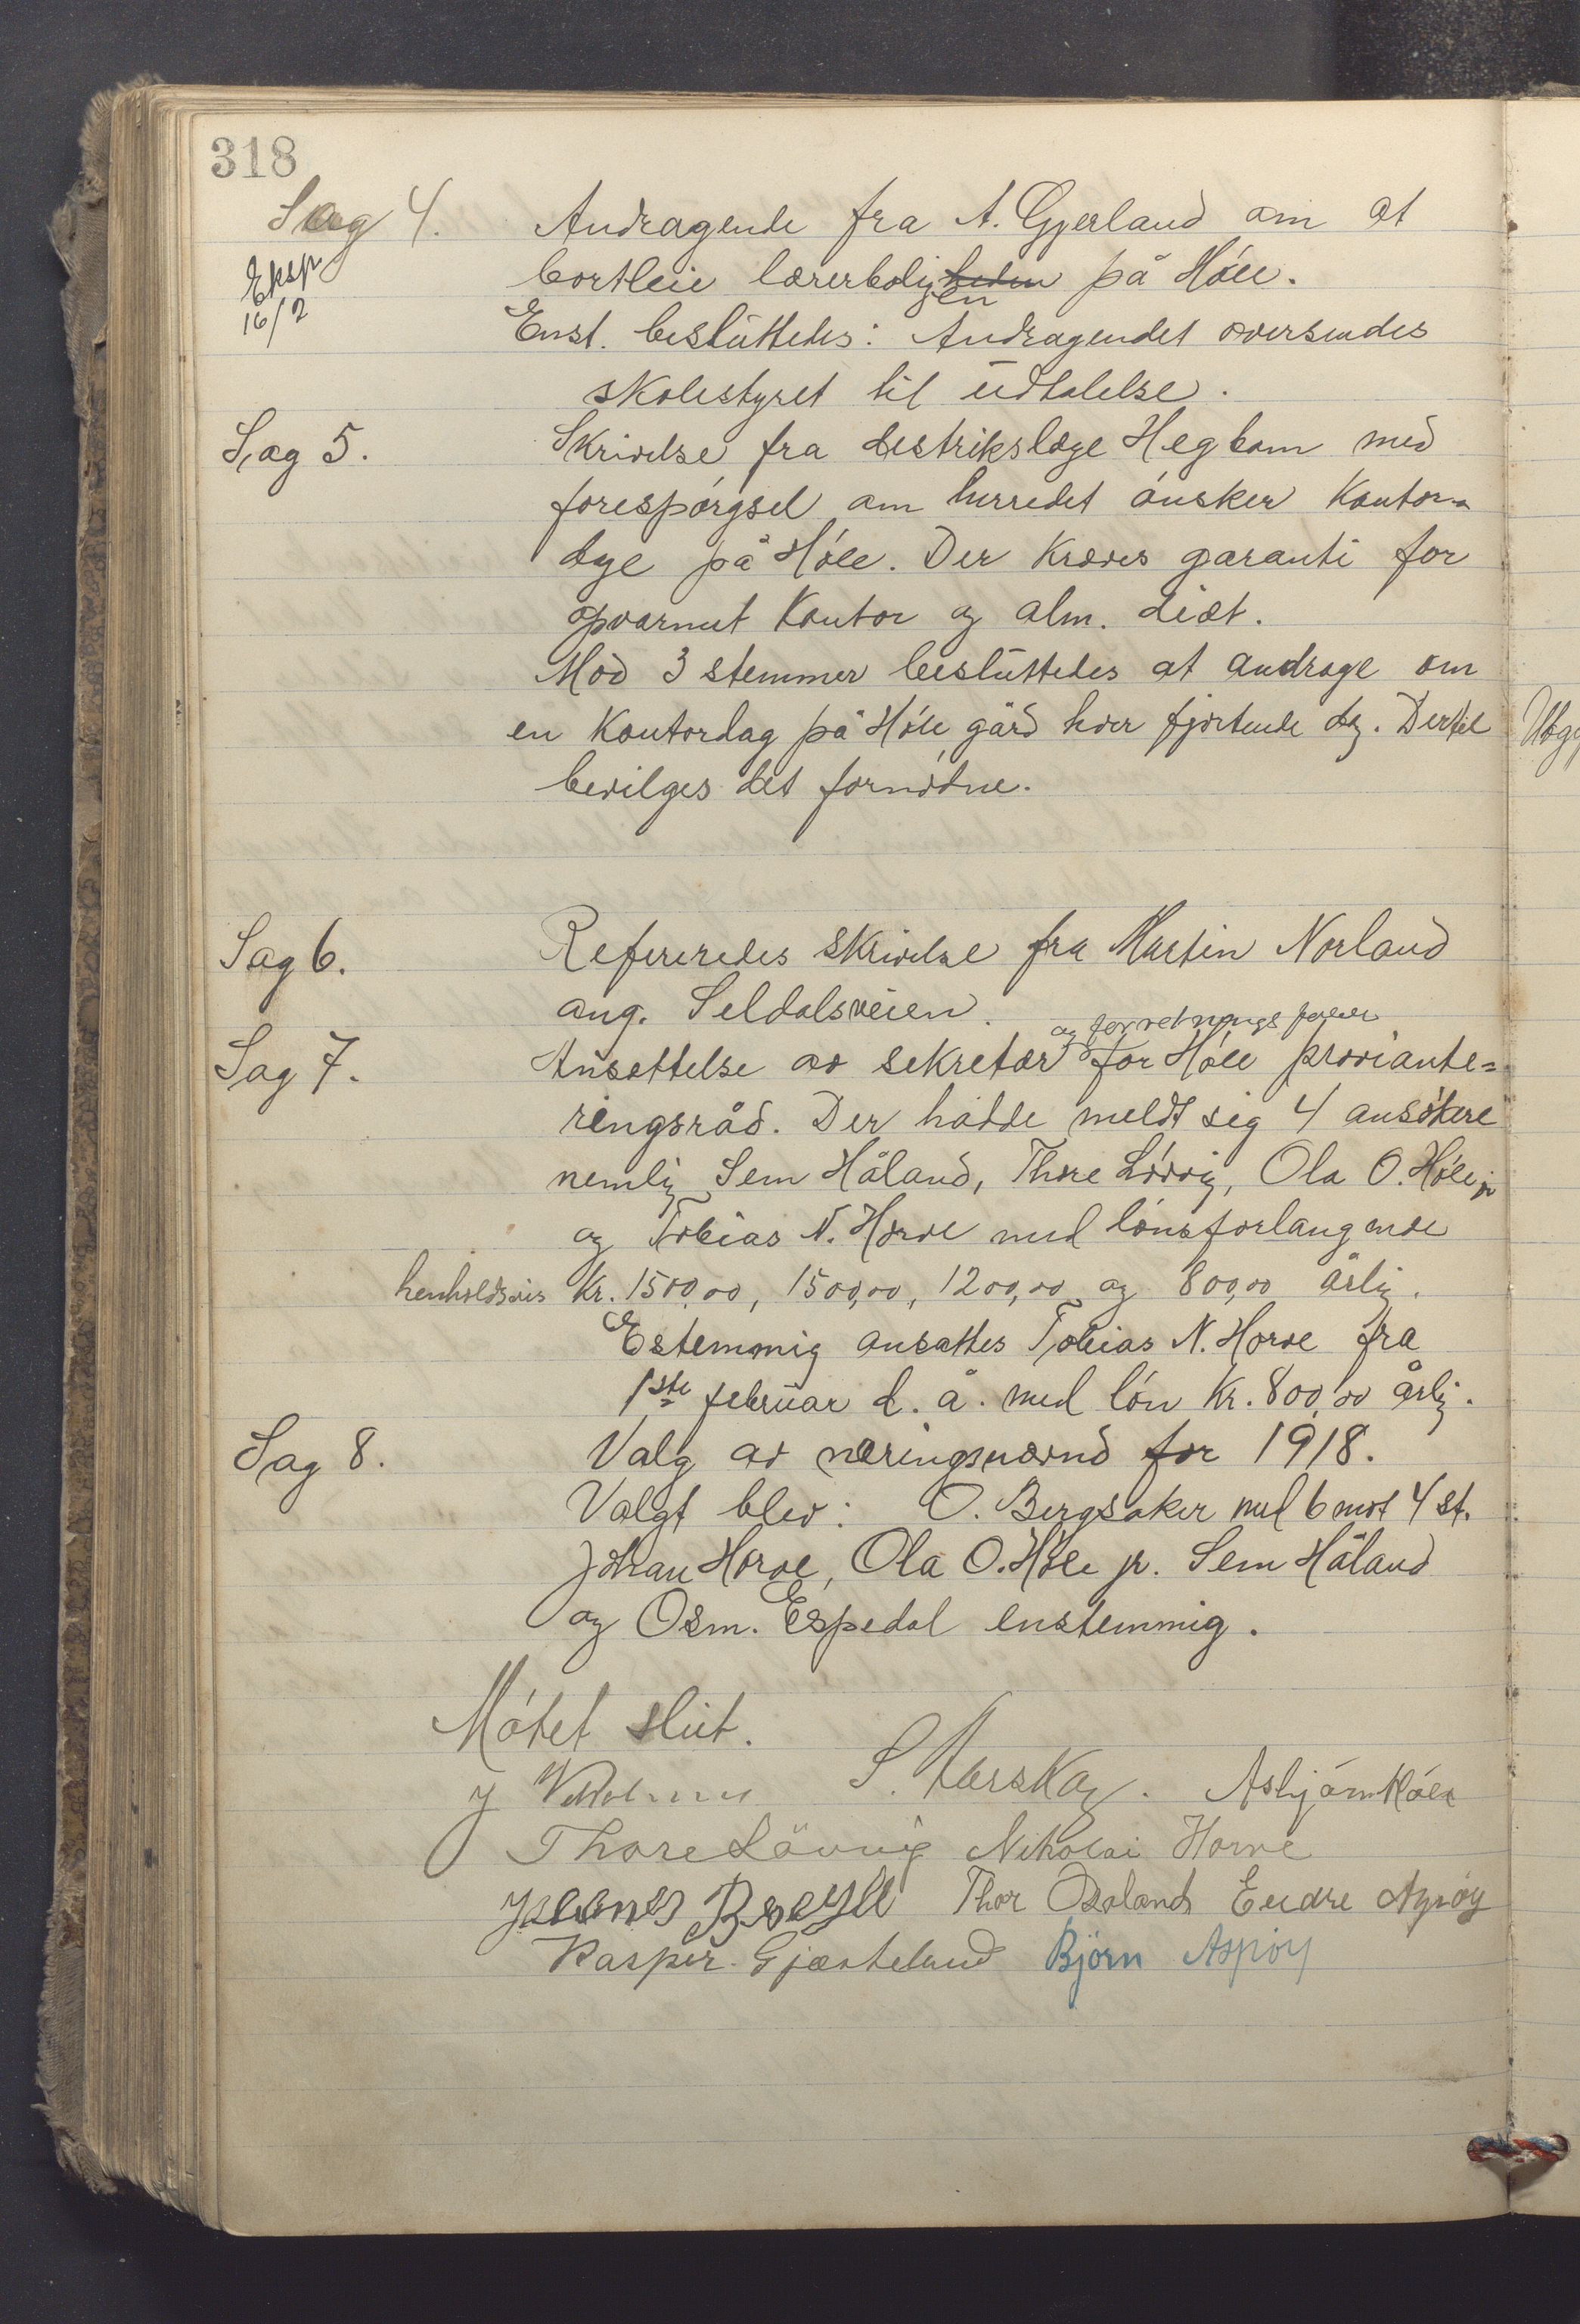 318
Sag 4. Andragende fra A. Gjerland om at
Eksp
16/2
bortleie lærerboligheden på Höle.
en
Enst. beslúttedes: Andragendet oversendes
skolestyret til údtalelse.
Sag 5. Skrivelse fra distrikslæge Hegbom med
forespörgsel om herredet önsker kontor-
dage på Höle. Der kræves garanti for
opvarmet kontor og alm. diæt.
Mod 3 stemmer beslúttedes at andrage om
en kontordag på Höle gård hver fjortende dg. Dertil
bevilges det fornödne.
Sag 6. Refereredes skrivelse fra Martin Norland
ang. Seldalsveien.
og forretningsförer
Sag 7. Ansættelse av sekretær for Höle proviante=
ringsråd. Der hadde meldt sig 4 ansökere
nemlig Sem Håland, Thore Lövvig, Ola O. Höle jr
og Tobias N. Horve med lönsforlangende
henholdsvis kr. 1500,00, 1500,00, 1200,00 og 800,00 årlig.
Estemmig ansattes Tobias N. Horve fra
1ste februar d. å. med lön kr. 800,00 årlig.
Sag 8. Valg av næringsnævnd for 1918.
Valgt blev: O. Bergsaker med 6 mot 4 st.
Johan Horve, Ola O. Höle jr. Sem Håland
og Osm. Espedal enstemmig.
Mötet slút.
S. Aarskog. Asbjörn Höle
Thore Lövvig Nikolai Horve
Thor Osaland Endre Aspöy
Kasper Gjesteland Björn Aspöy